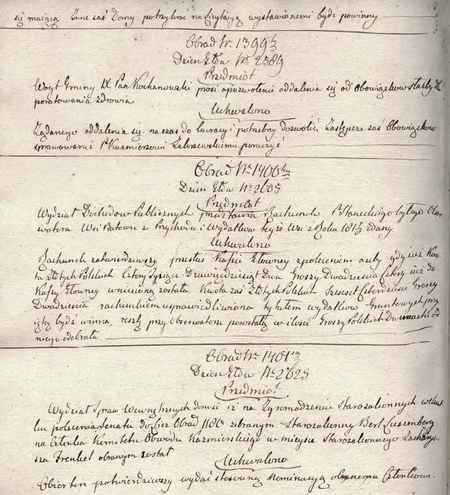 się mającą Inne zaś Domy potrzebne na licytacyą wystawionemi bydź powinny
Obrad Nr. 1399
Dzien: Głów Nr. 2389
Przedmiot
Woyt Gminy IX Pan Kochanowski prosi o pozwolenie oddalenia się od Obowiązków służby dla
poratowania zdrowia
Uchwalono
Żądanego oddalenia się na czas do kuracyi potrzebny dozwolić, Zastępcze zaś Obowiązków
sprawowanie P. Kazimierzowi Zaluzewskiemu poruczyć
Obrad Nr. 1400
Dzien Głów Nr. 2605
Przedmiot
Wydział Dochodów Publicznych przedstawia Rachunek byłego Obser
watora Wsi z Przychodu i Wydatku teyże Wsi z Roku zdany
Uchwalono
Rachunek zatwierdziwszy przesłać Kassie Główney z poleceniem aby gdy już Kwo
ta Złotych Polskich Cztery Tysiące Dziewięćdziesiąt Dwa Groszy Dwadzieścia Cztery już do
Kassy Główney wniesioną została Kwota zaś Złotych Polskich Groszy
Dwadzieścia rachunkiem usprawiedliwiona tytułem wydatków Gruntowych przy
jętą bydź winna, resztę przy Obserwatorze pozostałą w ilości Groszy Polskich Dwanaście od
niego odebrała
Obrad Nr. 1401
Dzien Głów Nr. 2625
Przedmiot
Wydział Spraw Wewnętrznych donosi iż na Zgromadzeniu Starozakonnych wsku
tku polecenia Senatu do Licz: Obrad 1100 zebranym Starozakonny Berl Luxemburg
na Członka Komitetu Obwodu Kazimierskiego w mieysce Starozakonnego Zachary
sza Frenkel obranym został
Uchwalono
Obiór ten potwierdziwszy wydać stosowną Nominacyą obranemu Członkowi.